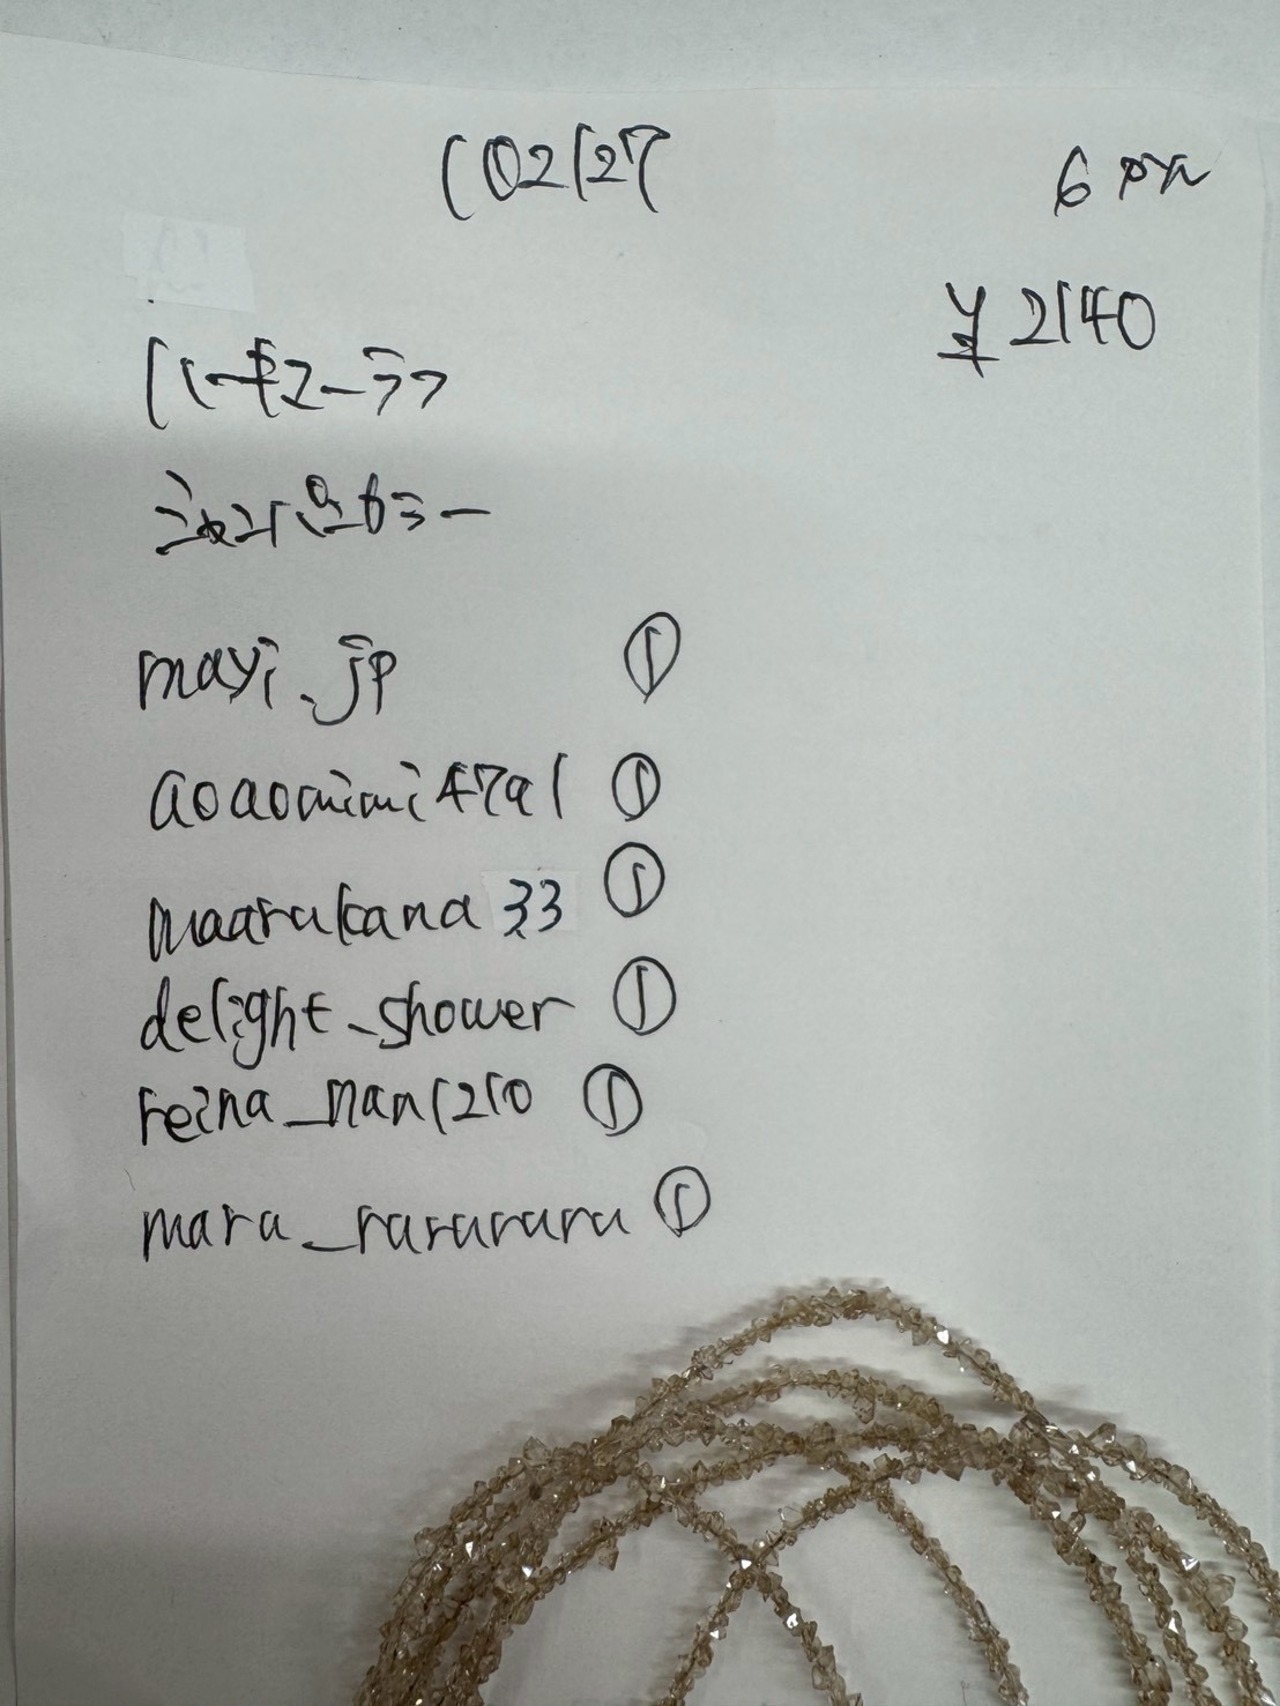 102127
6 pya
¥ 2140
mayi_jp ①
aoaomimi4791 ①
maarukana 33 ①
delight_shower ①
reina_nan1210 ①
mara_rarararu ①